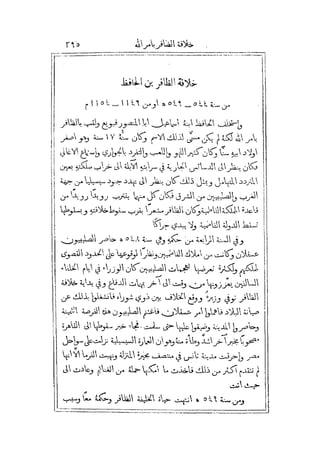 خلافة الظافر بامرالله ٣٩٥
خلافة الظافر بن الحافظ
من سنة ٥٤٤ – ٥٤٩ ه او من ١١٤٩ – ١١٥٤ م
واستخلف الحافظ ابنه اسماعيل ابا المنصور فبويع ولقب بالظافر
بامر الله لكنه لم يكن مسمى لذلك الاسم وكان سنه ١٧ سنة وهو اصغر
اولاد ابيه سنًا وكان كثير اللهو واللعب والتفرد بالجواري واستماع الاغاني
فكان ينظر الى الدسائس الجارية في سرايته الآيلة الى خراب ملكه بعين
المتردد المتهامل وبمثل ذلك كان ينظر الى تهدد جنود سيسيليا من جهة
الغرب والصليبيين من الشرق فكان كل منها يقترب رويدًا رويدًا من
قاعدة المملكة الفاطمية وكان الظافر متحذرًا بقرب سقوط خلافته وبسقوطها
تسقط الدولة الفاطمية ولا يبدي حراكًا
وفي السنة الرابعة من حكمه وهي سنة ٥٤٨ ه حاصر الصليبيون
عسقلان وكانت من املاك الفاطميين ونظرًا لوقوعها على الحدود القصوى
لمملكتهم ولكثرة تعرضها لهجمات الصليبيين كان الوزراء في ايام الخلفاء
السالفين يعززونها من وقت الى آخر بمهمات الدفاع وفي بداية خلافة
الظافر توفي وزيره ووقع الخلاف بين ذوي شوراه فانشغلوا بذلك عن
صيانة البلاد فاهملوا امر عسقلان فاغتنم الصليبيون هذه الفرصة الثمينة
وحاصروا المدينة وضيقوا عليها حتى سلمت فجاء خبر سقوطها الى القاهرة
مصحوبًا بخبر آخر اشد وطأة منه وهو ان العمارة السيسيلية نزلت على سواحل
مصر واحرقت مدينة تانيس في منتصف بحيرة المنزلة ونهبت الفرما الا انها
لم تتقدم اكثر من ذلك فاخذت ما امكنها حمله من الغنائم وعادت الى
حيث اتت
ومن سنة ٥٤٩ ه انتهت حياة الخليفة الظافر وحكمه معًا وسبب